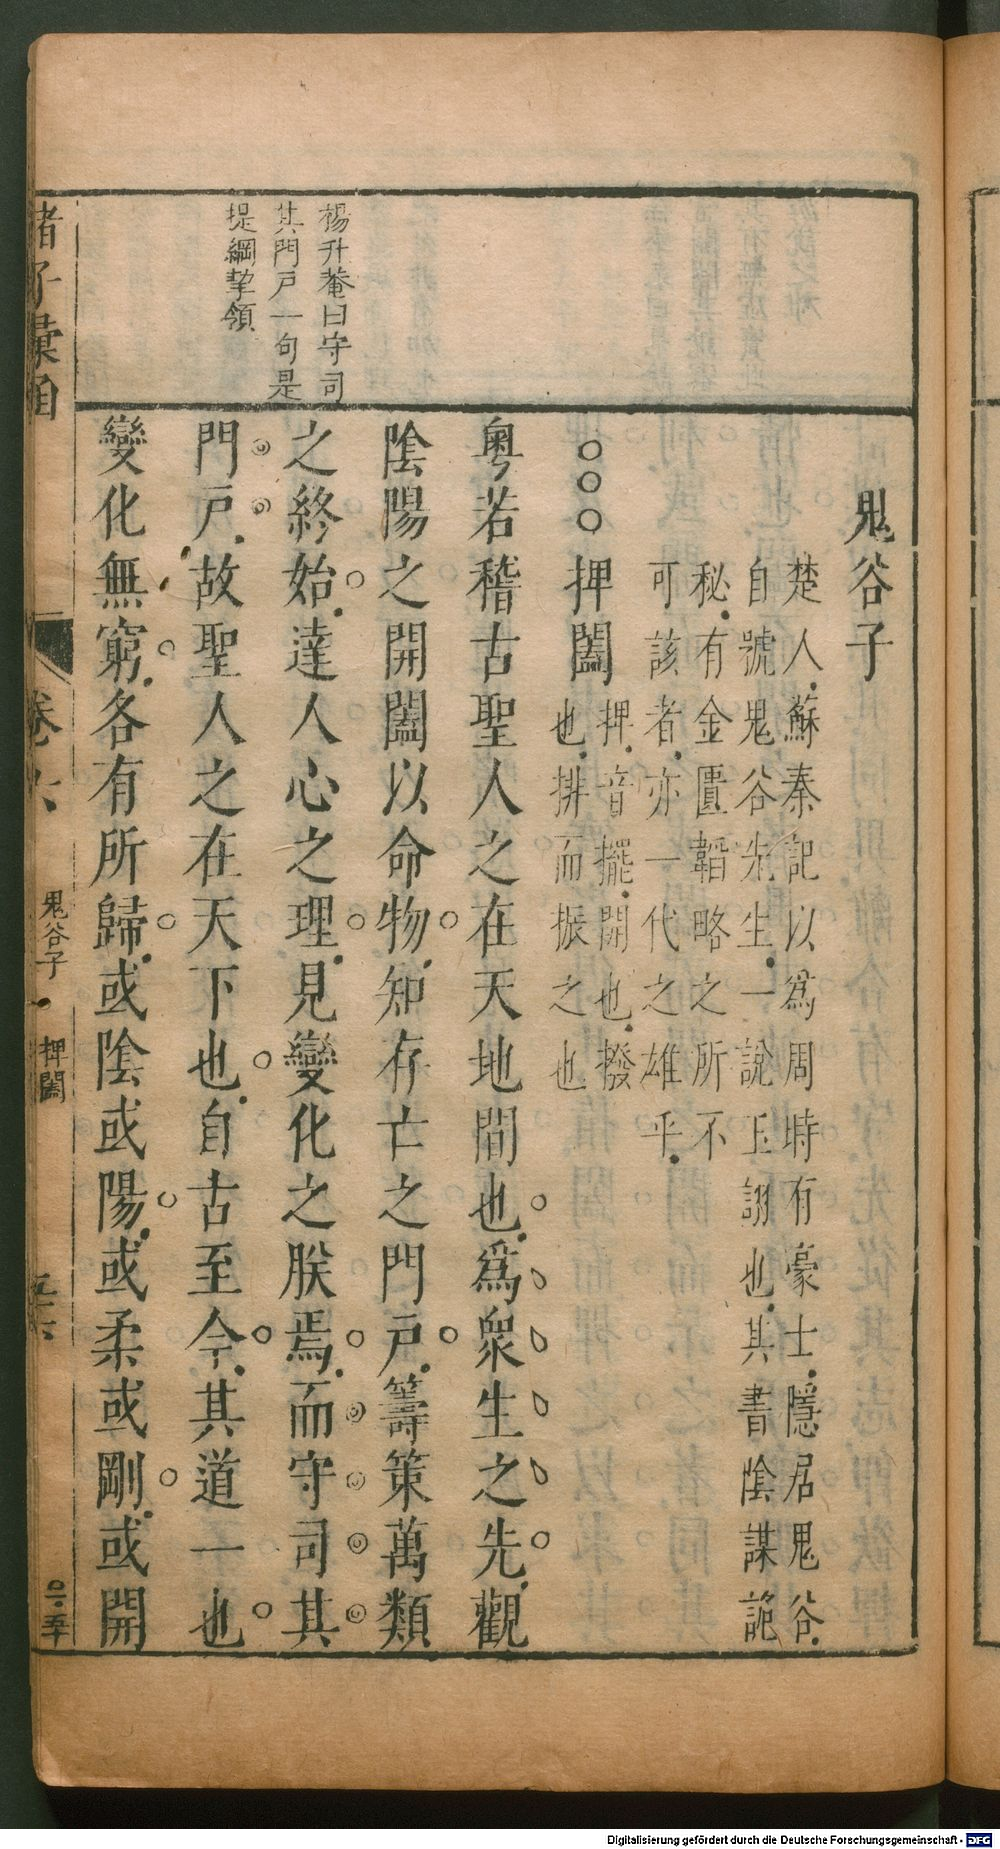 楊升菴曰守司
其門戶一句是
提綱挈領
鬼谷子
楚人蘇秦記以爲周時有豪士隱居鬼谷
自號鬼谷先生一說王詡也其書陰謀詭
秘有金匱韜略之所不
可該者亦一代之雄乎
○○○捭闔
捭音擺開也撥
也排而振之也
粤若稽古聖人之在天地間也爲衆生之先觀
陰陽之開闔以命物知存亡之門戶籌策萬類
之終始達人心之理見變化之朕焉而守司其
門戶故聖人之在天下也自古至今其道一也
變化無窮各有所歸或陰或陽或柔或剛或開
諸子彙函
卷八
鬼谷子
捭闔
Digitalisierung gefördert durch die Deutsche Forschungsgemeinschaft - DFG